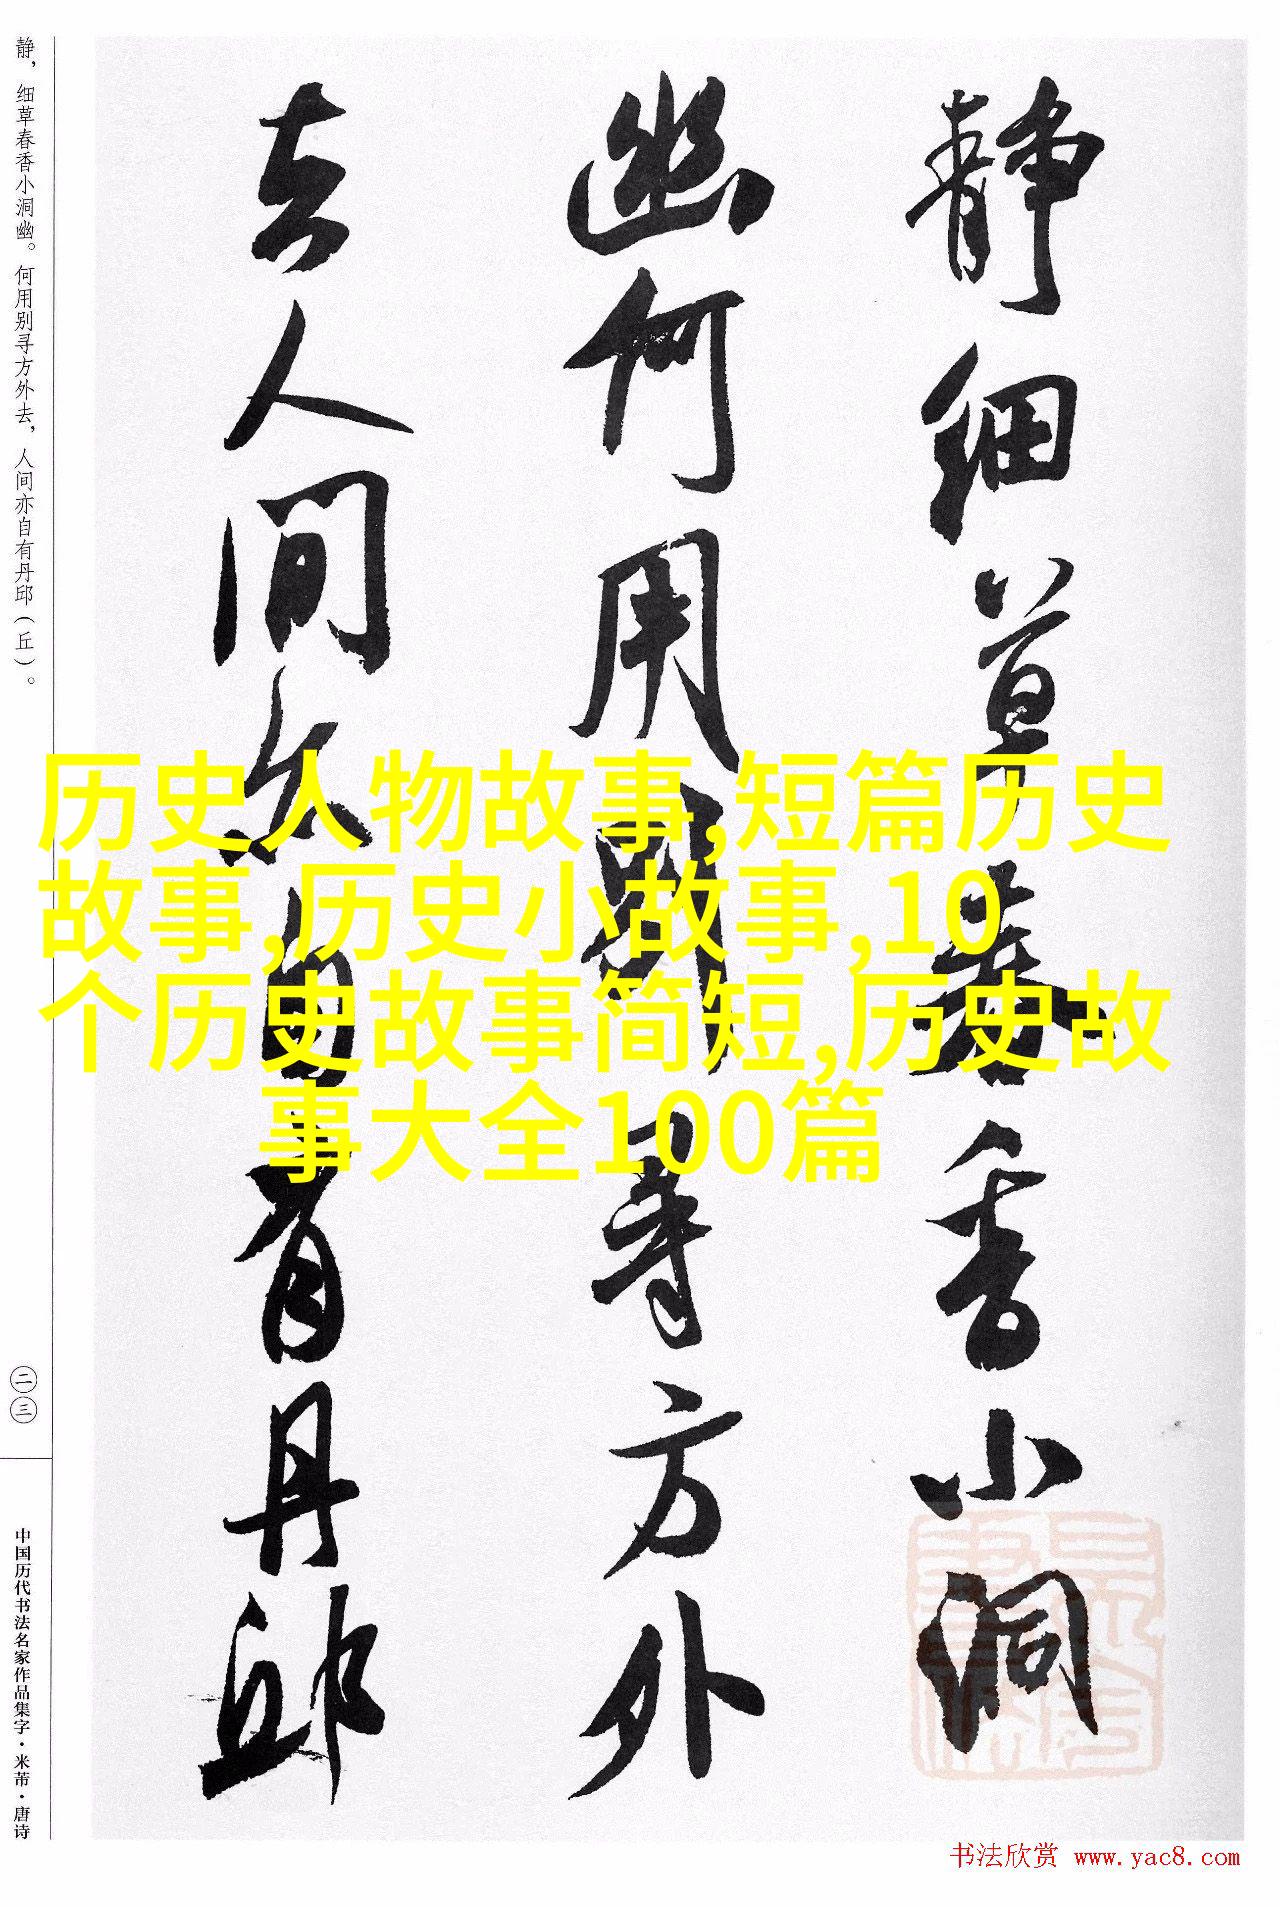 静细草春香小洞
幽何用别寻方外
去人间亦自有丹邱
静，细草春香小洞幽。何用别寻方外去，人间亦自有丹邱（丘）。
二三
中国历代书法名家作品集字·米芾·唐诗
历史人物故事,短篇历史
故事,历史小故事,10
个历史故事简短,历史故
事大全100篇
书法欣赏 www.yac8.com